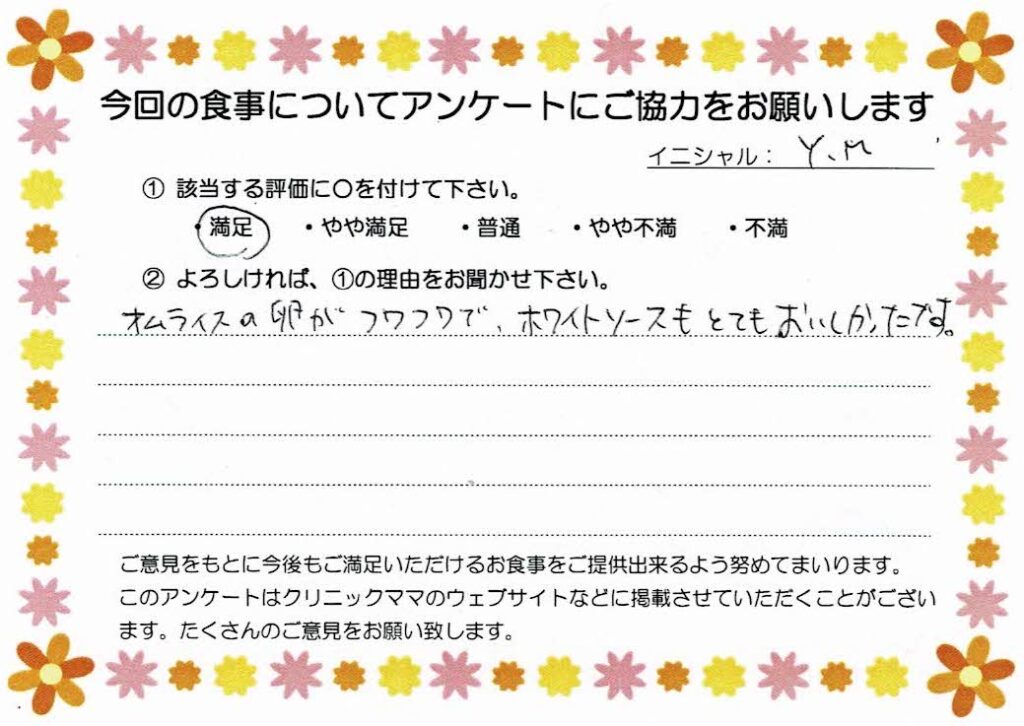 今回の食事についてアンケートにご協力をお願いします
イニシャル： Y.M
① 該当する評価に〇を付けて下さい。
・満足 ・やや満足 ・普通 ・やや不満 ・不満
② よろしければ、①の理由をお聞かせ下さい。
オムライスの卵がフワフワで、ホワイトソースもとてもおいしかったです。
ご意見をもとに今後もご満足いただけるお食事をご提供出来るよう努めてまいります。
このアンケートはクリニックママのウェブサイトなどに掲載させていただくことがござい
ます。たくさんのご意見をお願い致します。